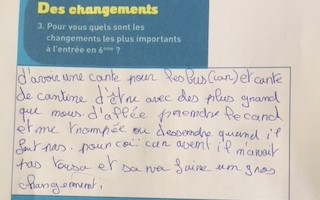 Des changements
3. Pour vous quels sont les
changements les plus importants
à l'entrée en 6ème ?
d'avoir une cante pour les bus (can) et cante
de cantine d'être avec des plus grand
que nous. d'allée prendre le cand
et me trompée ou dessendre quand il
faut pas. pour coi: can avent il m'avait
pas tousa et sa va faire un gros
changement,